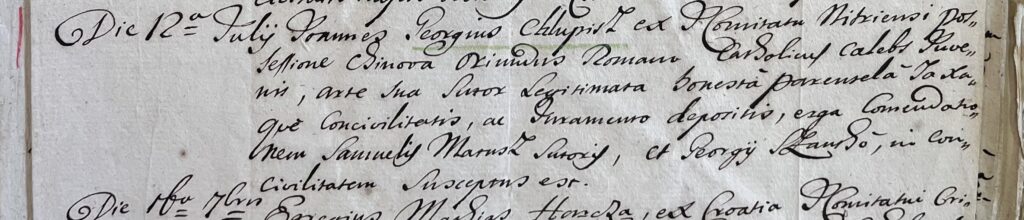 Die 12ª Julij Joannes Georgius Chlupisz ex Comitatu Nitriensi pos=
sessione Chinova Oriundus Romano Catholicus Caelebs Juve=
nis, arte sua Sutor Legitimata honestâ parentelâ Taxa=
que Concivilitatis, ac Juramento depositis, erga Comendatio=
nem Samuelis Matusz Sutoris, et Georgij Szkauskó, in con=
civilitatem Susceptus est.
Die 1ma 7bris Egregius Mathias Horczka, ex Croatia Comitatui Cri=